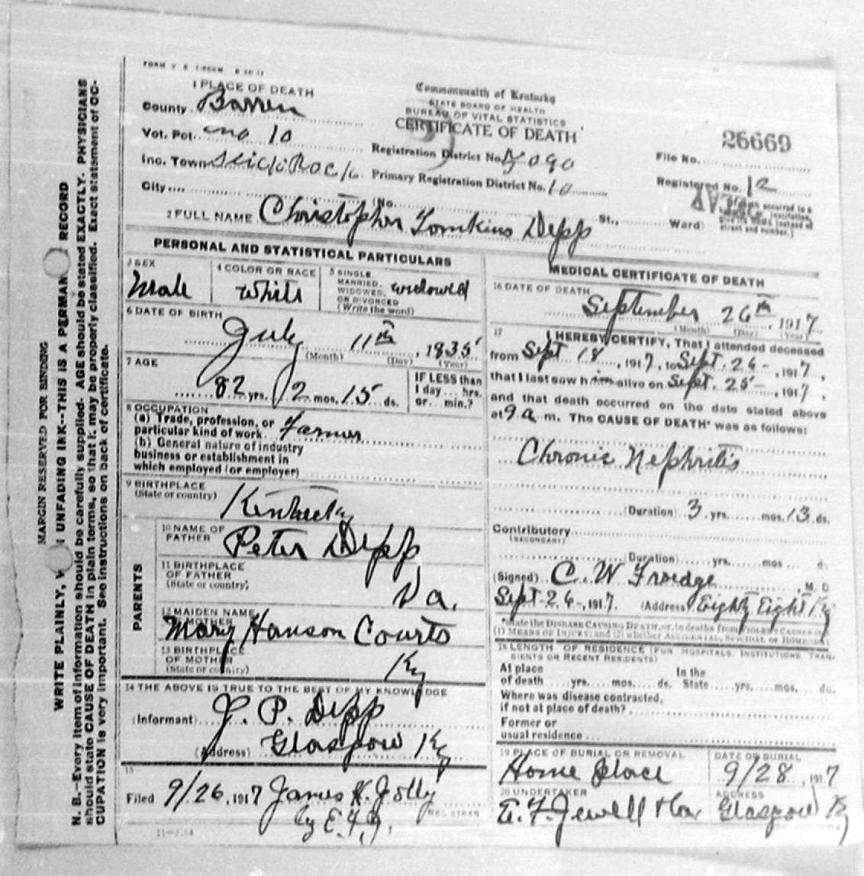 FORM V. S.
1 PLACE OF DEATH
County Barren
Vot. Pct. no 10
Inc. Town Slick Rock
City....
Commonwealth of Kentucky
STATE BOARD OF HEALTH
BUREAU OF VITAL STATISTICS
CERTIFICATE OF DEATH
Registration District No. 5090
Primary Registration District No. 10
(No. St., Ward)
26669
File No.
Registered No. 12
2 FULL NAME Christopher Tomkins Depp
PERSONAL AND STATISTICAL PARTICULARS
3 SEX
Male
4 COLOR OR RACE
White
5 SINGLE,
MARRIED,
WIDOWED,
OR DIVORCED
(Write the word)
widowed
6 DATE OF BIRTH
July 11th, 1835
(Month) (Day) (Year)
7 AGE
82 yrs. 2 mos. 15 ds.
IF LESS than
1 day... hrs.
or... min.?
8 OCCUPATION
(a) Trade, profession, or
particular kind of work Farmer
(b) General nature of industry
business or establishment in
which employed (or employer)
9 BIRTHPLACE
(State or country)
Kentucky
PARENTS
10 NAME OF
FATHER
Peter Depp
11 BIRTHPLACE
OF FATHER
(State or country)
Va.
12 MAIDEN NAME
OF MOTHER
Mary Hanson Courts
13 BIRTHPLACE
OF MOTHER
(State or country)
Ky
14 THE ABOVE IS TRUE TO THE BEST OF MY KNOWLEDGE
(Informant) J. P. Depp
(Address) Glasgow Ky
15
Filed 9/26, 1917 James K. Jolly
by E. F. J. REGISTRAR
MEDICAL CERTIFICATE OF DEATH
16 DATE OF DEATH
September 26th, 1917
(Month) (Day) (Year)
17 I HEREBY CERTIFY, That I attended deceased
from Sept 18, 1917, to Sept. 26-, 1917,
that I last saw him alive on Sept. 25-, 1917,
and that death occurred on the date stated above
at 9 a. m. The CAUSE OF DEATH* was as follows:
Chronic Nephritis
(Duration) 3 yrs. mos. 13 ds.
Contributory
(SECONDARY)
(Duration) yrs. mos. d.
(Signed) C. W Froedge M. D
Sept. 26-, 1917. (Address) Eighty Eight Ky
*State the DISEASE CAUSING DEATH, or, in deaths from VIOLENT CAUSES
(1) MEANS OF INJURY; and (2) whether ACCIDENTAL, SUICIDAL or HOMICIDAL
18 LENGTH OF RESIDENCE (FOR HOSPITALS, INSTITUTIONS, TRANSIENTS OR RECENT RESIDENTS)
At place
of death yrs. mos. ds.
In the
State yrs. mos. ds.
Where was disease contracted,
if not at place of death?
Former or
usual residence
19 PLACE OF BURIAL OR REMOVAL
Home place
DATE OF BURIAL
9/28, 1917
20 UNDERTAKER
E. F. Jewell & Co
ADDRESS
Glasgow Ky
MARGIN RESERVED FOR BINDING
WRITE PLAINLY, W UNFADING INK--THIS IS A PERMAN RECORD
N. B.--Every item of information should be carefully supplied. AGE should be stated EXACTLY. PHYSICIANS
should state CAUSE OF DEATH in plain terms, so that it may be properly classified. Exact statement of OC-
CUPATION is very important. See instructions on back of certificate.